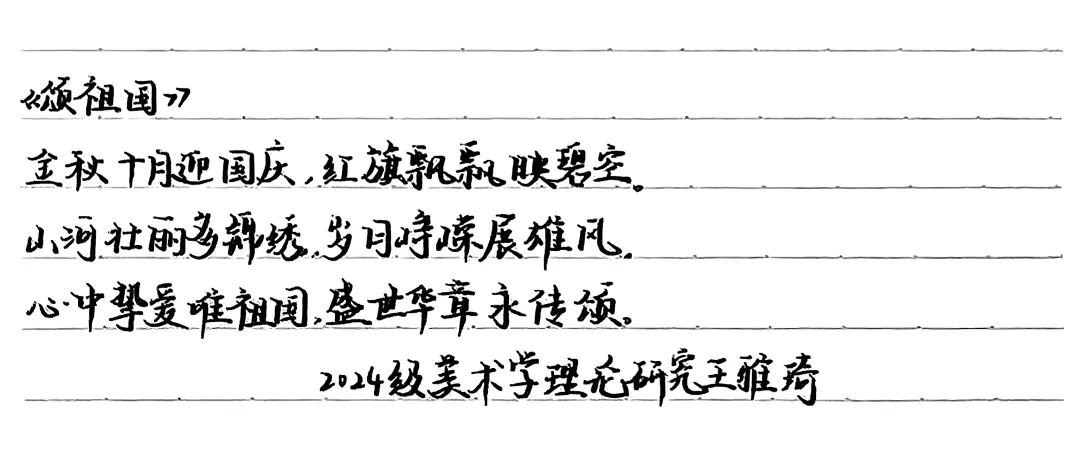 《颂祖国》
金秋十月迎国庆,红旗飘飘映碧空。
山河壮丽多锦绣,岁月峥嵘展雄风。
心中挚爱唯祖国,盛世华章永传颂。
2024级美术学理论研究王雅琦